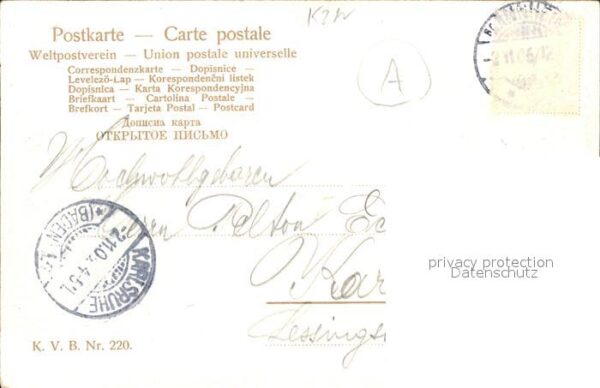 K2W
Postkarte — Carte postale
Weltpostverein — Union postale universelle
Correspondenzkarte — Dopisnice —
Levelező-Lap — Korespondenční lístek
Dopisnica — Karta Korespondencyjna
Briefkaart — Cartolina Postale —
Brefkort — Tarjeta Postal — Postcard
Дописна карта
ОТКРЫТОЕ ПИСЬМО
A
Hochwohlgeboren
Herren
Kar
Lessings
KARLSRUHE
(BADEN)
privacy protection
Datenschutz
K. V. B. Nr. 220.